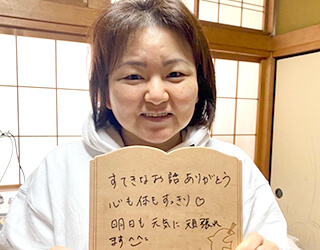 すてきなお話ありがとう
心も体もすっきり♡
明日も元気に頑張れ
ます^^~